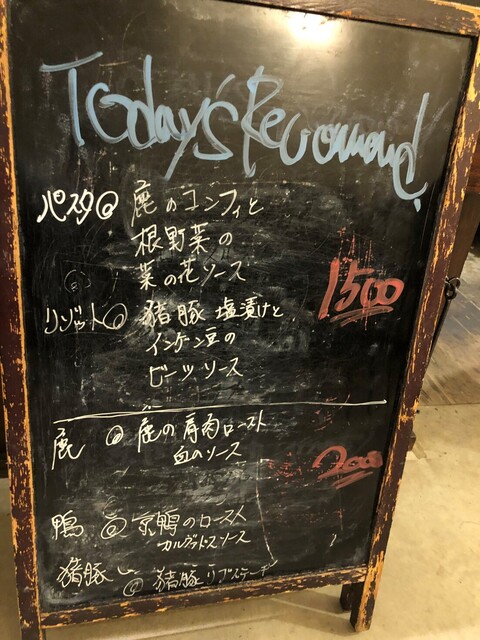 Today's Recomend.
パスタ◎ 鹿のコンフィと
根野菜の
菜の花ソース
1500
リゾット◎ 猪豚 塩漬けと
インゲン豆の
ビーツソース
鹿 ◎ 鹿の肩肉ロースト
血のソース
2000
鴨 ◎ 京鴨のロースト
カルヴァドスソース
猪豚 ◎ 猪豚リブステーキ